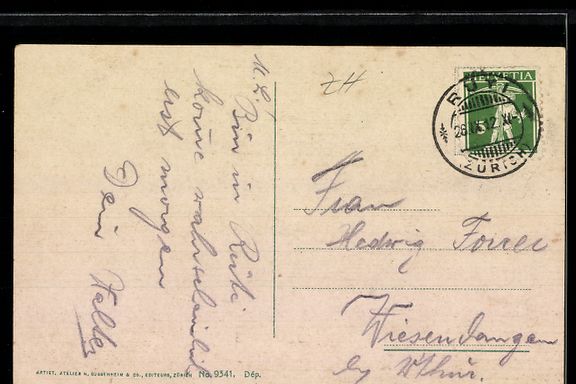 M. L.
Bin in Rüti
komme wahrscheinlich
erst morgen
Dein Walter
ZH
HELVETIA
RÜTI
26.IX.12.XI
(ZÜRICH)
Frau
Hedwig Forrer
Wiesendangen
by W'thur.
ARTIST. ATELIER H. GUGGENHEIM & CO., EDITEURS, ZÜRICH No. 9341. Dép.